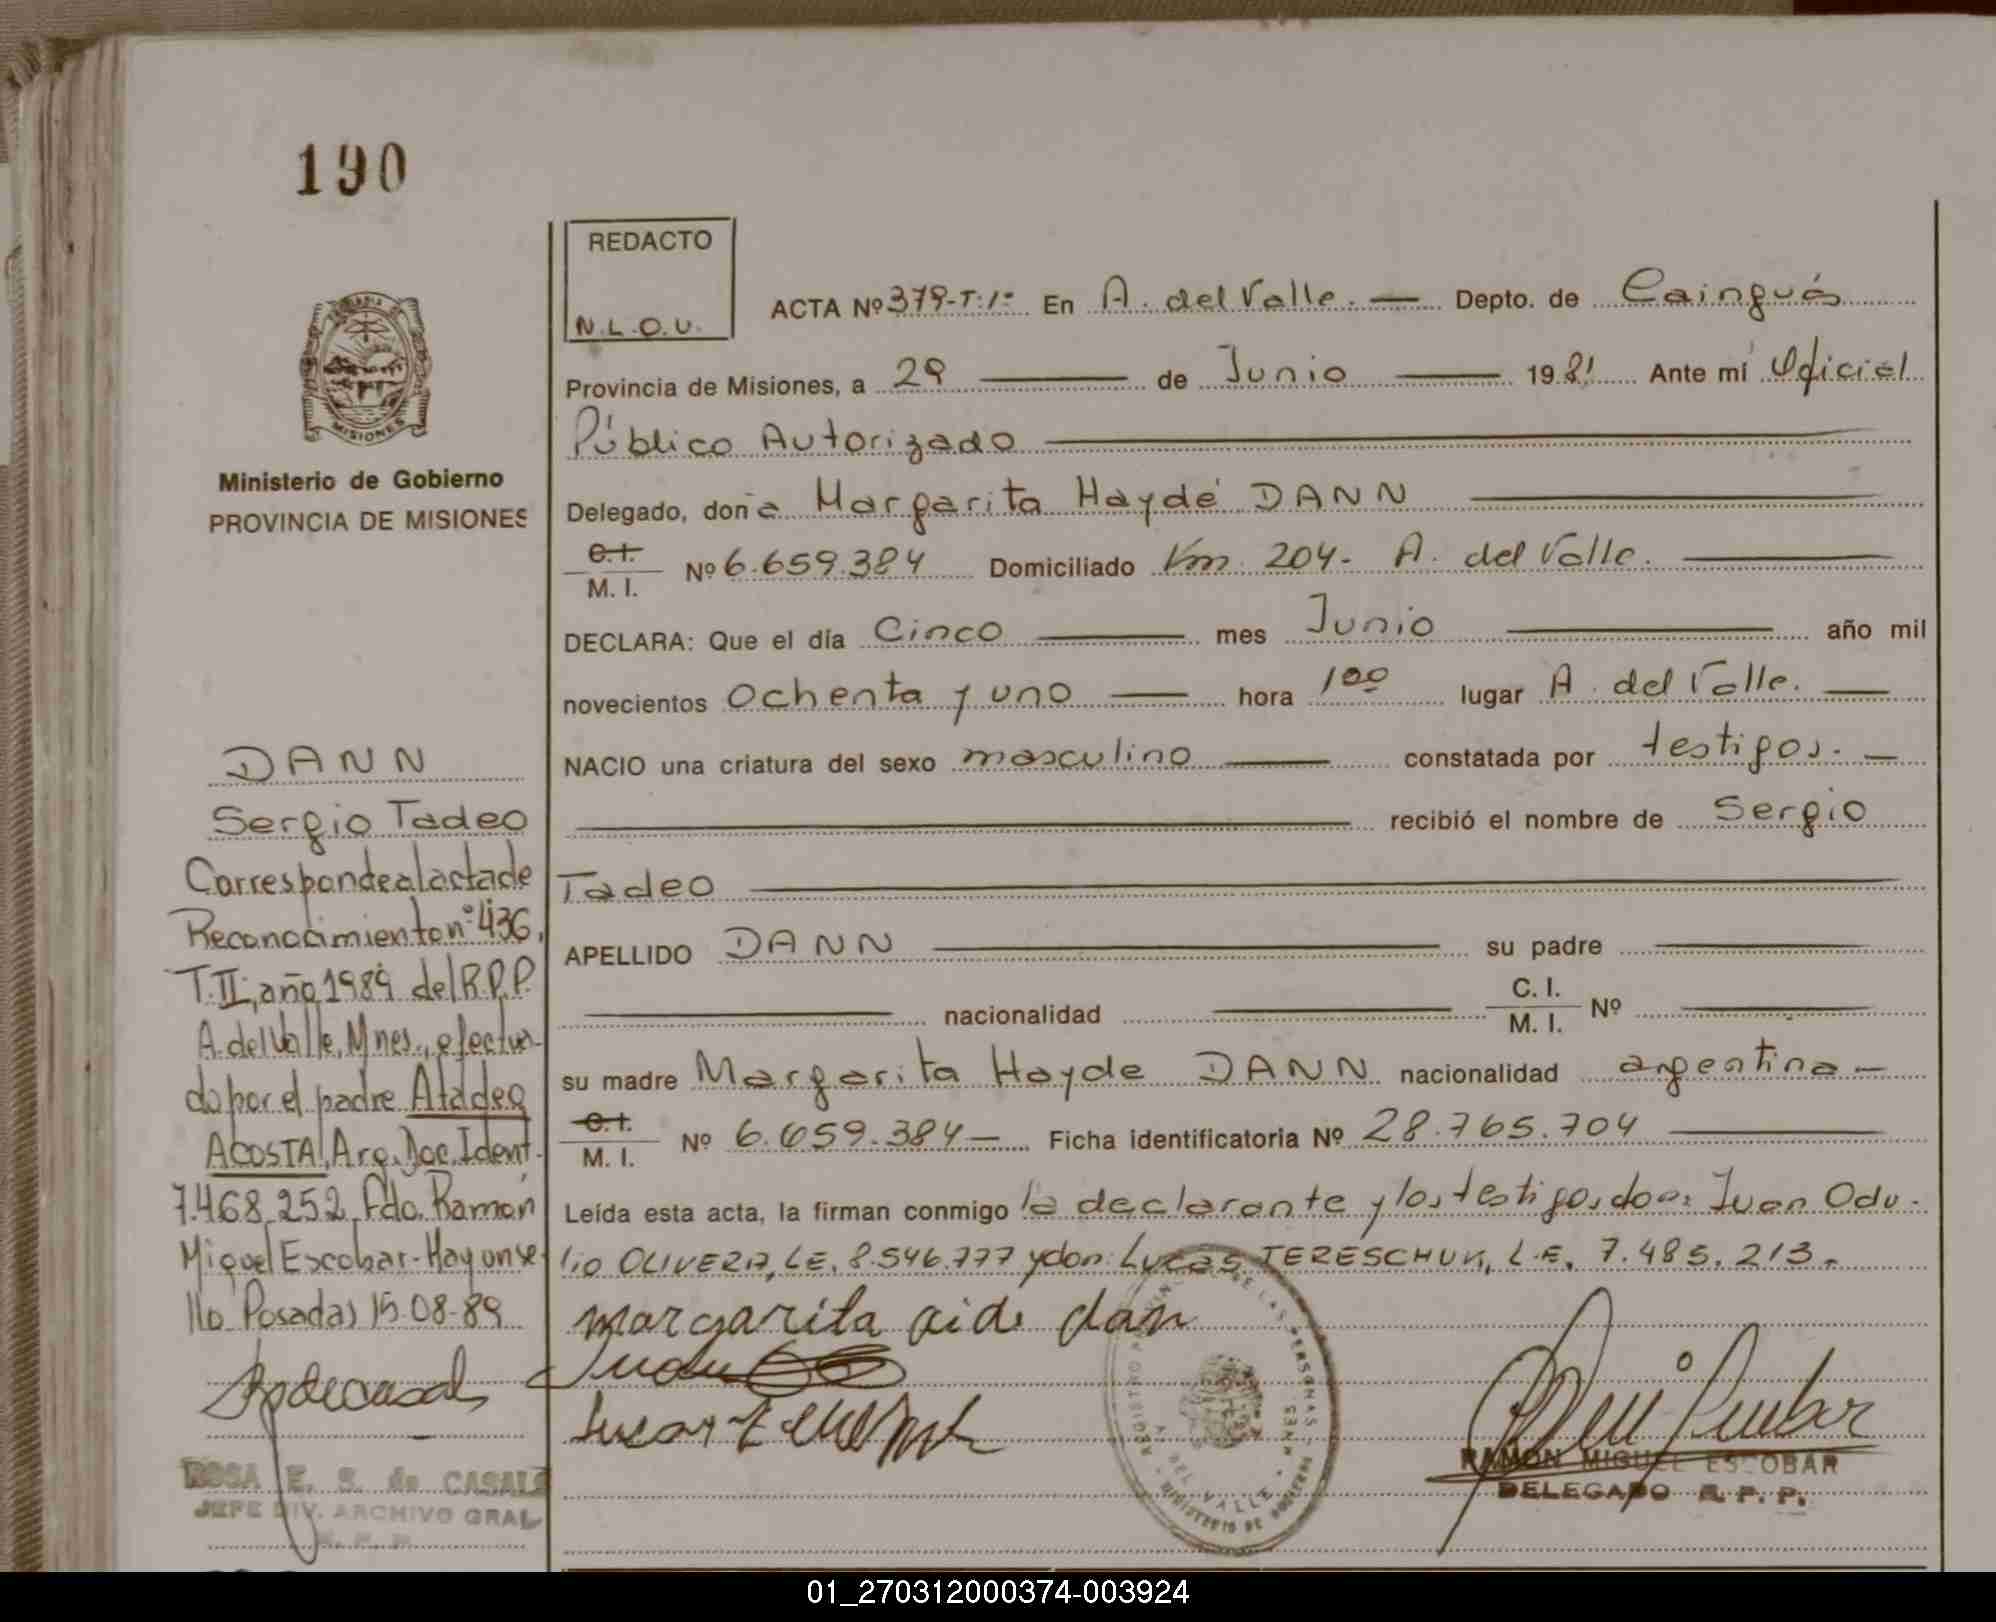 190
REDACTO
N.L.O.U.
ACTA Nº 379-T:1º En A. del Valle. Depto. de Cainguás
Provincia de Misiones, a 29 de Junio 1981 Ante mí Oficial
Público Autorizado
Delegado, doña Margarita Haydé DANN
C.I. M. I. Nº 6.659.384 Domiciliado Km. 204- A. del Valle.
DECLARA: Que el día Cinco mes Junio año mil
novecientos Ochenta y uno hora 1 00 lugar A. del Valle.
NACIO una criatura del sexo masculino constatada por testigos.
recibió el nombre de Sergio
Tadeo
APELLIDO DANN su padre
nacionalidad C. I. M. I. Nº
su madre Margarita Hayde DANN nacionalidad argentina
C.I. M. I. Nº 6.659.384 Ficha identificatoria Nº 28.765.704
Leída esta acta, la firman conmigo la declarante y los testigos, don: Juan Odu-
lio OLIVERA, LE. 8.546.777 y don: Lucas TERESCHUK, L.E. 7.485.213.
margarita aide dan
RAMON MIGUEL ESCOBAR
DELEGADO R. P. P.
MISIONES
Ministerio de Gobierno
PROVINCIA DE MISIONES
DANN
Sergio Tadeo
Corresponde al acta de
Reconocimiento nº 436,
T. II, año 1989 del R.P.P.
A. del Valle, Mnes., efectua-
do por el padre Atadeo
ACOSTA, Arg. Doc. Ident.
7.468.252. Fdo. Ramón
Miguel Escobar- Hay un se-
llo Posadas 15-08-89
ROSA E. S. de CASALS
JEFE DIV. ARCHIVO GRAL
R. P. P.
01_270312000374-003924